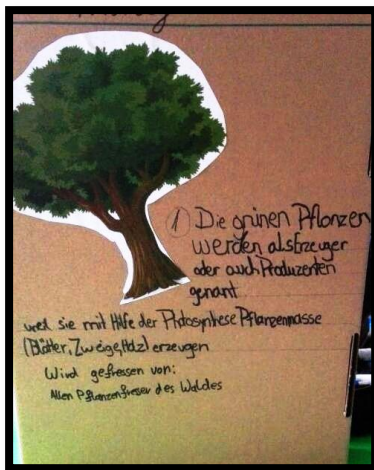 ① Die grünen Pflanzen
werden als Erzeuger
oder auch Produzenten
genant
weil sie mit Hilfe der Photosynthese Pflanzenmasse
(Blätter, Zweige, Holz) erzeugen
Wird gefressen von:
Allen Pflanzenfresser des Waldes